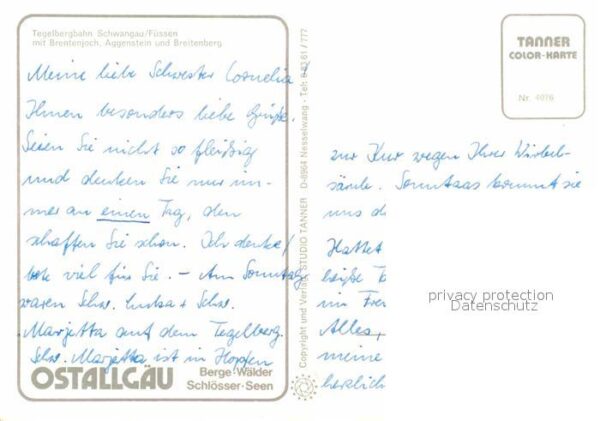 Tegelbergbahn Schwangau/Füssen
mit Brentenjoch, Aggenstein und Breitenberg
Meine liebe Schwester Cornelia
Ihnen besonders liebe Grüße.
Seien Sie nicht so fleißig
und denken Sie nur im-
mer an einen Tag, den
schaffen Sie schon. Ich denke/
bete viel für Sie. – Am Sonntag
waren Schw. + Schw.
Marjetta auf dem Tegelberg.
Schw. Marjetta ist in Hopfen
OSTALLGÄU
Berge·Wälder
Schlösser·Seen
Copyright und Verlag STUDIO TANNER D-8964 Nesselwang - Tel. 0 83 61 / 777
TANNER
COLOR-KARTE
Nr. 4076
zur Kur wegen Ihrer Wirbel-
säule. Sonntags kommt sie
uns
Hattet
heiße
im
Alles,
meine
herzlich
privacy protection
Datenschutz